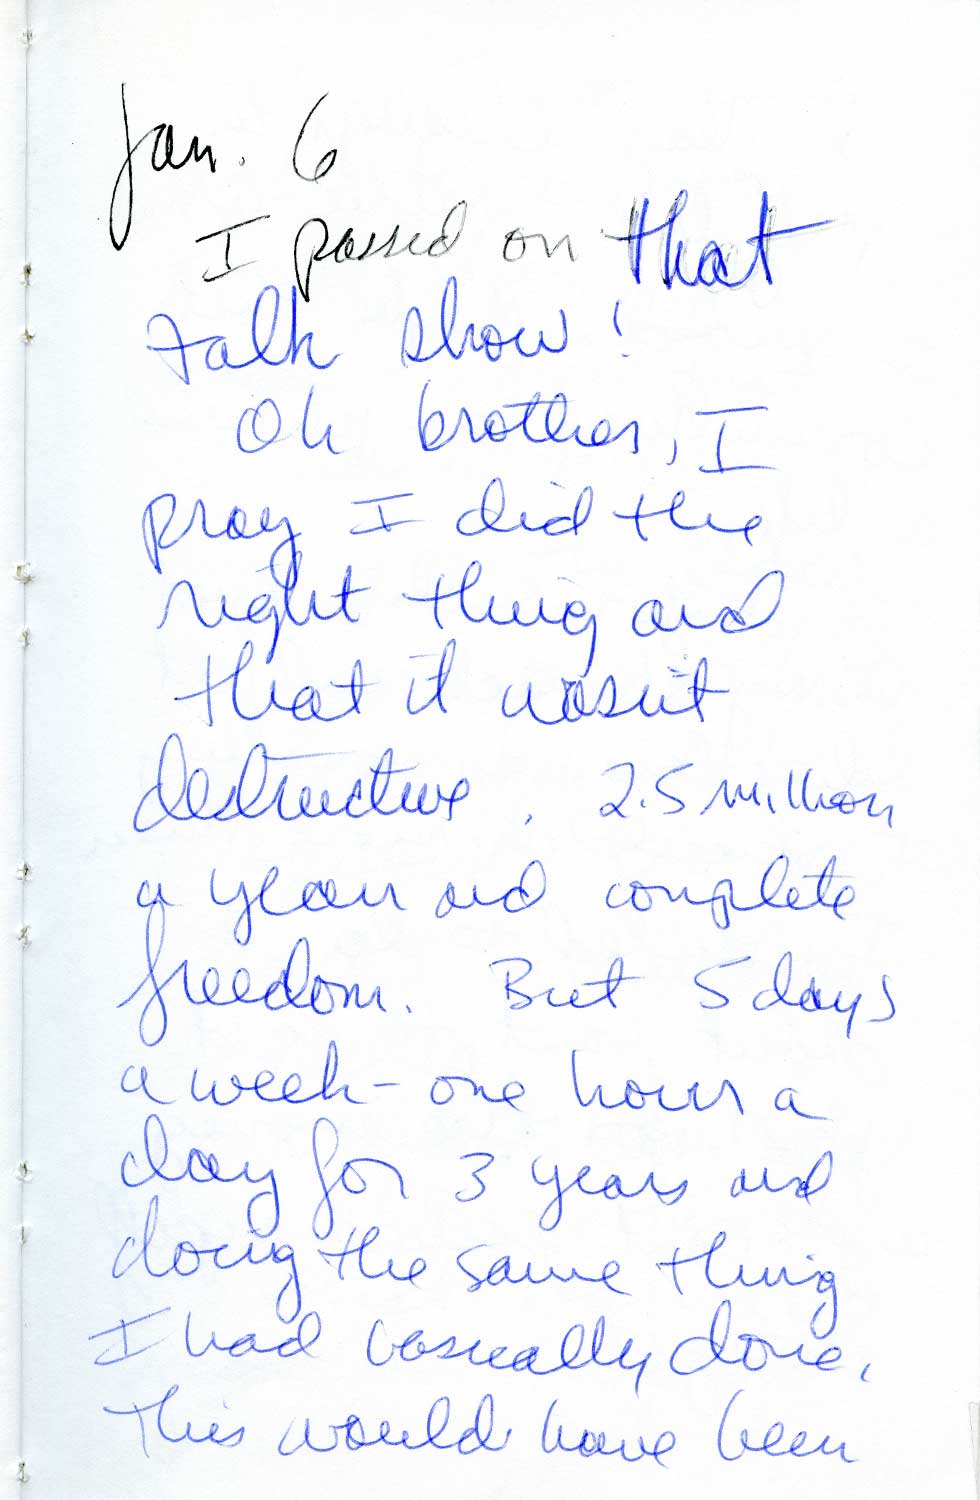 Jan. 6
I passed on that
talk show!
Oh brother, I
pray I did the
right thing and
that it wasn't
destructive. 2.5 million
a year and complete
freedom. But 5 days
a week - one hour a
day for 3 years and
doing the same thing
I had basically done,
this would have been